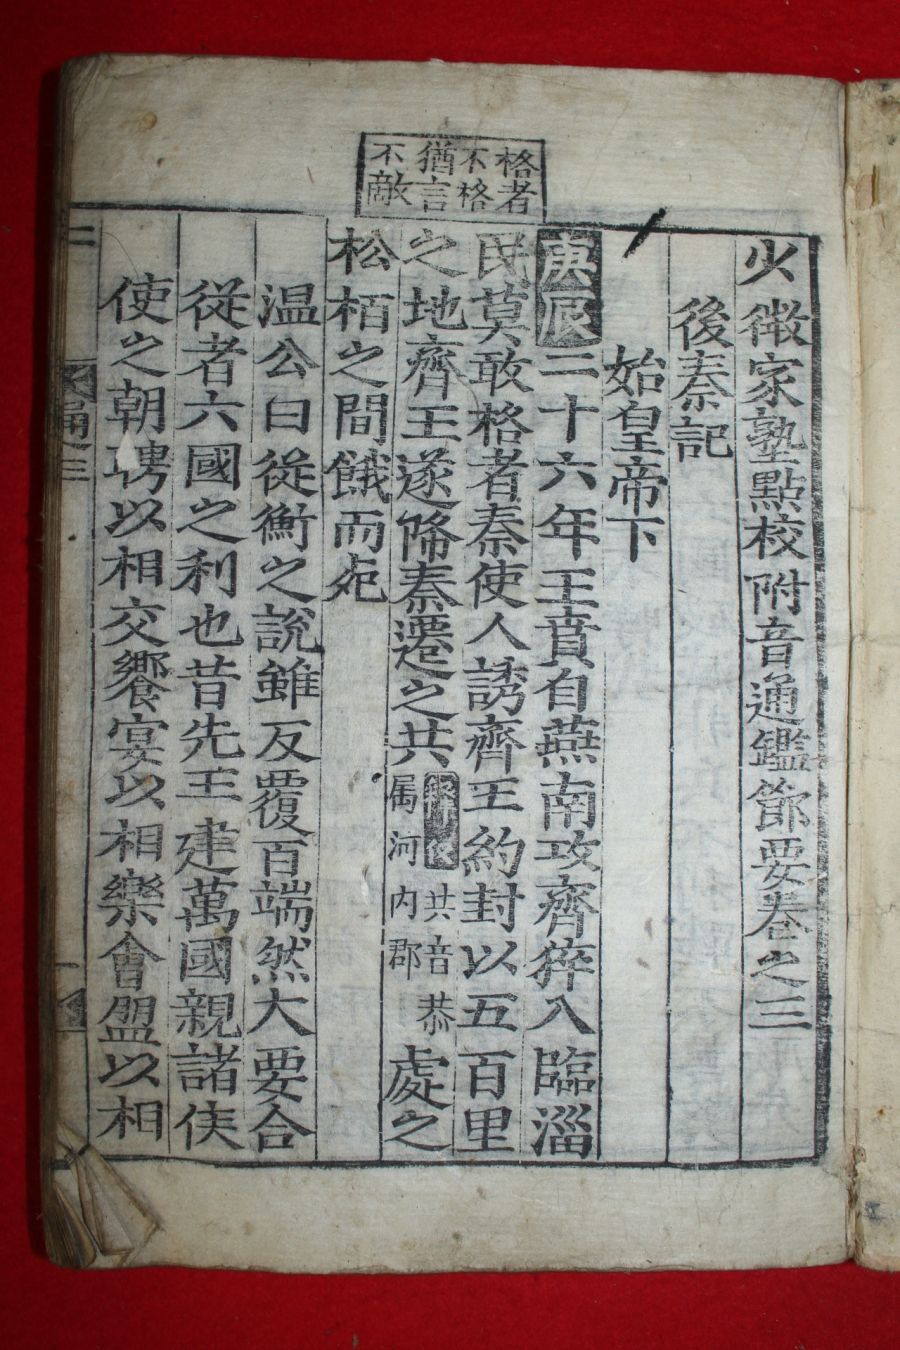 格者
不格
猶言
不敵
少微家塾點校附音通鑑節要卷之三
後秦記
始皇帝下
庚辰二十六年王賁自燕南攻齊猝入臨淄
民莫敢格者秦使人誘齊王約封以五百里
之地齊王遂降秦遷之共共音恭屬河內郡處之
松栢之間餓而死
温公曰從衡之說雖反覆百端然大要合
從者六國之利也昔先王建萬國親諸侯
使之朝聘以相交饗宴以相樂會盟以相
通三
一